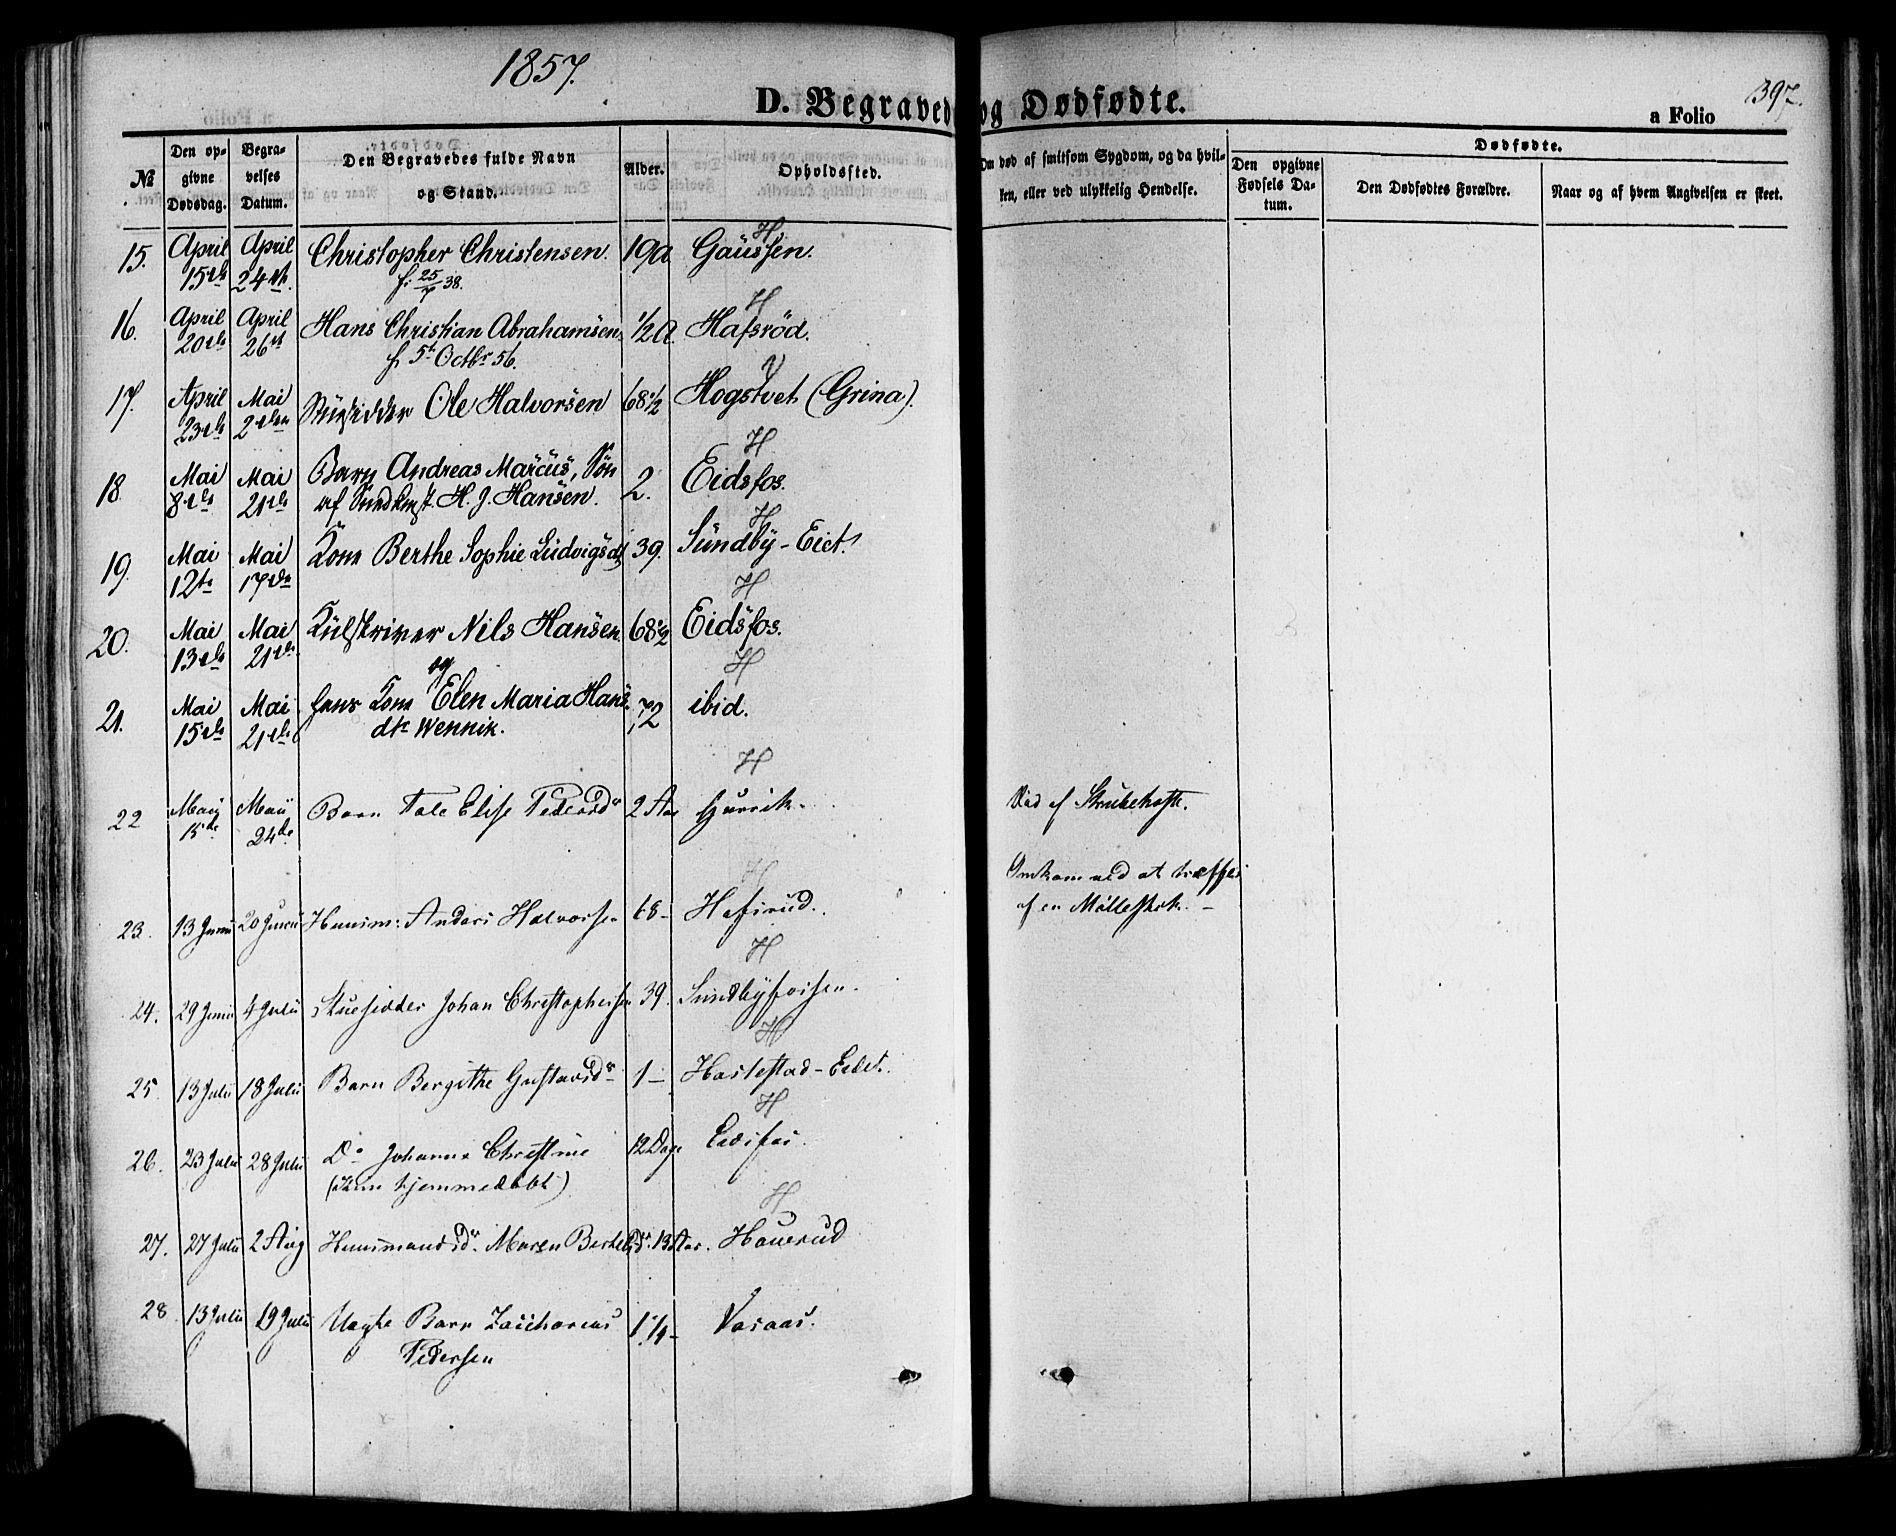 1857.
D. Begravede og Dødfødte.
a Folio 397.
№
Den opgivne Dødsdag.
Begravelses Datum.
Den Begravedes fulde Navn og Stand.
Alder.
Opholdssted.
Om død af smitsom Sygdom, og da hvilken, eller ved ulykkelig Hendelse.
Dødfødte.
Den opgivne Fødsels Datum.
Den Dødfødtes Forældre.
Naar og af hvem Angivelsen er skeet.
15. April 15de April 24de Christopher Christensen. 19 a Gaussen. H
f. 25/7 38.
16. April 20de April 26de Hans Christian Abrahamsen ½ a. Hafsröd. H
f. 5te Octbr 56.
17. April 23de Mai 2den Ole Halvorsen 68½ Hogstvet (Grina). V
18. Mai 8de Mai 21de Barn Andreas Marcus, Søn 2. Eidsfos. H
af H. J. Hansen.
19. Mai 12te Mai 17de Kone Berthe Sophie Ludvigsdt 39. Sundby-Eiet. H
20. Mai 13de Mai 21de Kulskriver Nils Hansen 68½ Eidsfos. H
og
21. Mai 15de Mai 21de hans Kone Elen Maria Hans 72 ibid. H
dtr Wennik.
22 Maij 15de Maij 24de Barn Tale Elise Pedersdr 2 Aar H
Død af Strubehoste.
23. 13 Junii 20 Junii Huusm: Anders Halvorsen 68- Hafsrud. H
Omkom ved at træffes
af en Möllestok. -
24. 29 Junii 4 Julii Stuesidder Johan Christophersen 39. Sundbyfossen. H
25. 13 Julii 18 Julii Barn Bergithe Gustavsdr 1- Hastestad-Eiet. H
26. 23 Julii 28 Julii Do Johanne Christine 12 Dage Eidsfos. H
(kun hjemmedøbt)
27. 27 Julii 2 Aug Huusmandsdr. Maren Bertelsdr. 13 Aar. Hauerud H
28 13 Julii 19 Julii Uægte Barn Zacharias 1¼- Vasaas.
Pedersen